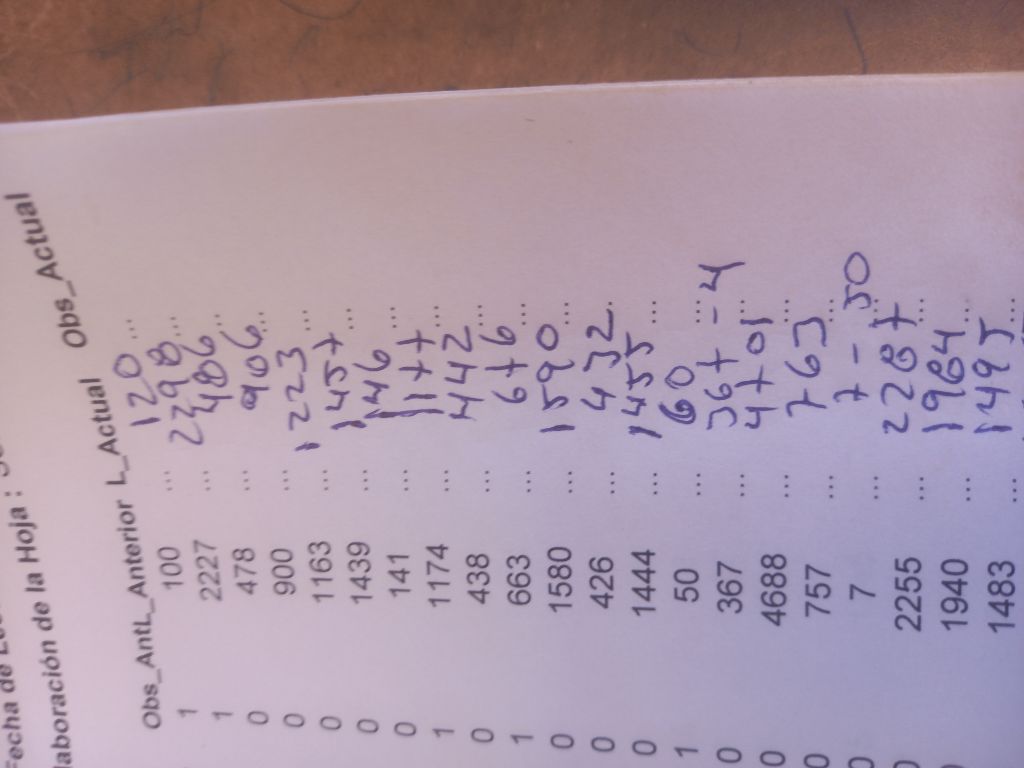 Fecha de
laboración de la Hoja :
Obs_AntL_Anterior L_Actual Obs_Actual
1 100 ... 120 ...
1 2227 ... 2298 ...
0 478 ... 486 ...
0 900 ... 906 ...
0 1163 ... 1223 ...
0 1439 ... 1457 ...
0 141 ... 146 ...
1 1174 ... 1177 ...
0 438 ... 442 ...
1 663 ... 676 ...
0 1580 ... 1590 ...
0 426 ... 432 ...
0 1444 ... 1455 ...
1 50 ... 60 ...
0 367 ... 367 - 4
0 4688 ... 4701 ...
0 757 ... 763 ...
0 7 ... 7 - 50
0 2255 ... 2287 ...
0 1940 ... 1964 ...
0 1483 ... 1495 ...